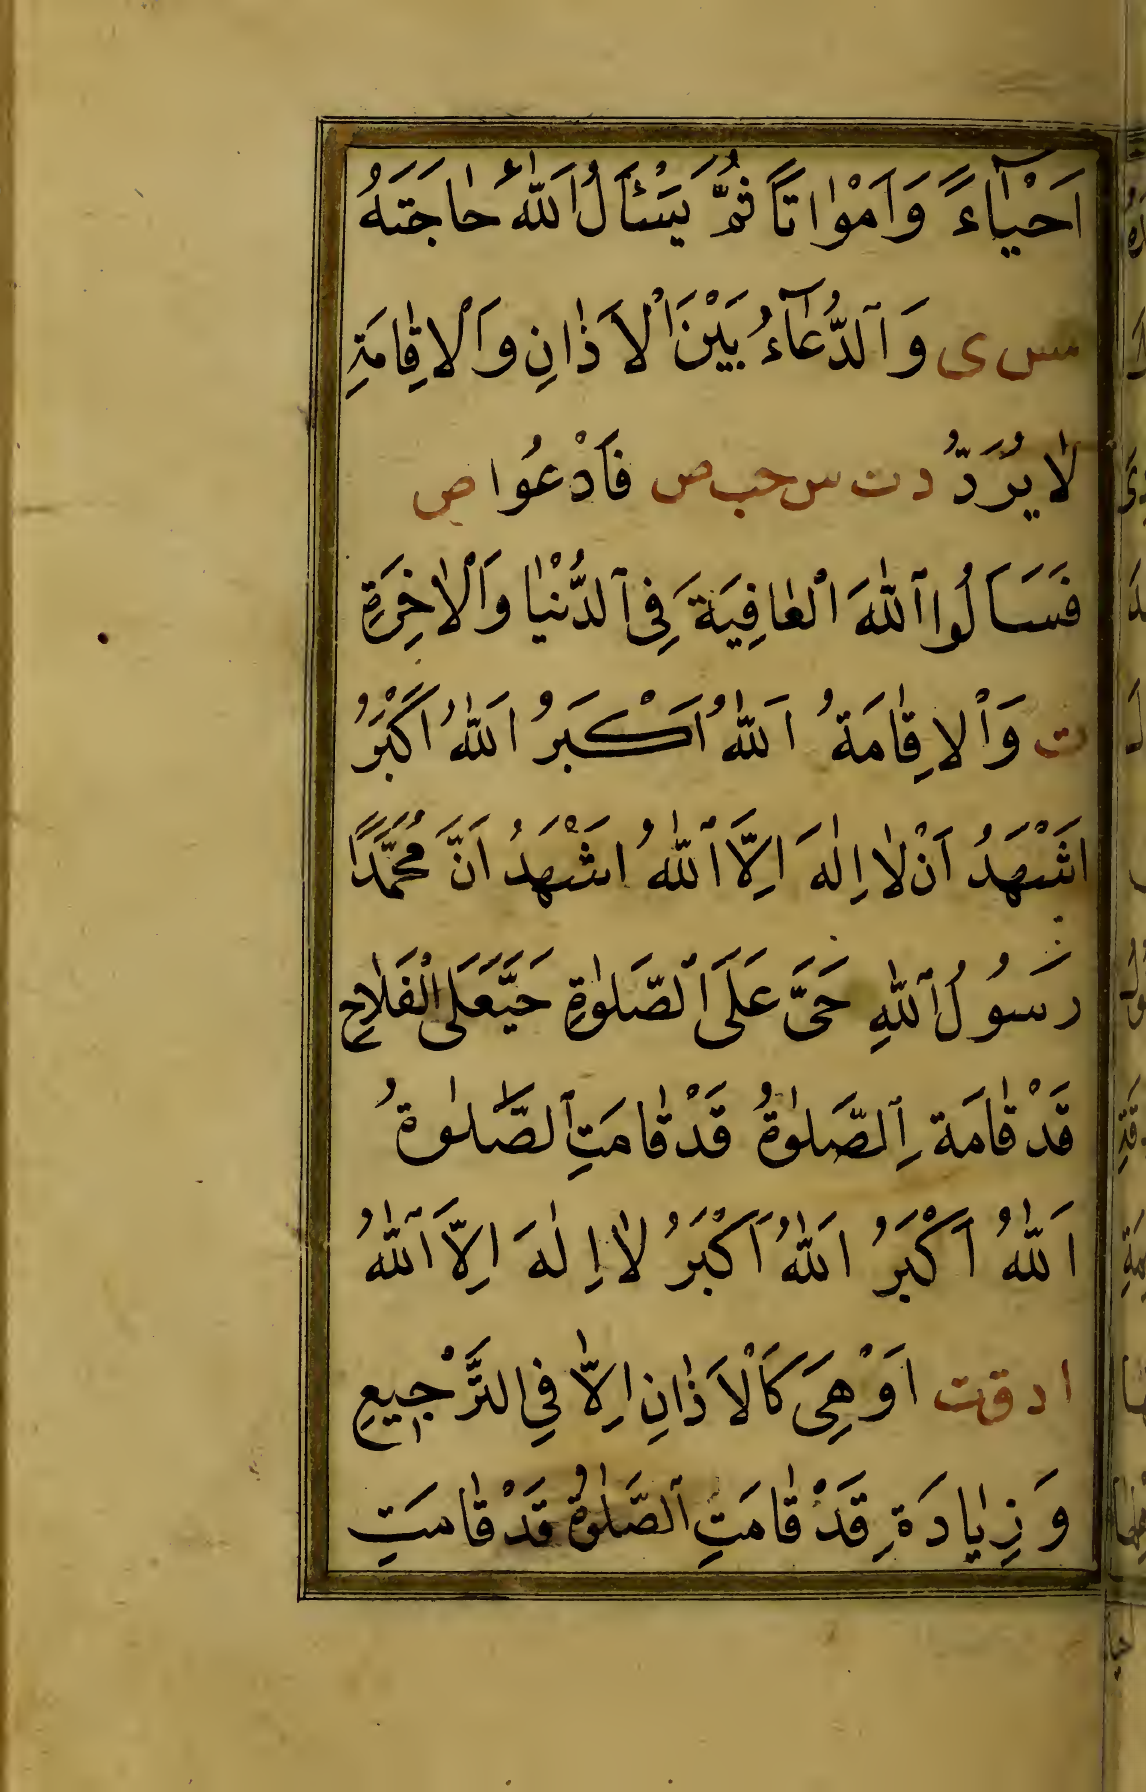 اَحْيَآءً وَاَمْوَاتًا ثُمَّ يَسْئَلُ اللّٰهَ حَاجَتَهُ
مس ى وَالدُّعَآءُ بَيْنَ الْاَذَانِ وَالْاِقَامَةِ
لَا يُرَدُّ د ت س حب ص فَادْعُوا ص
فَسَاَلُوا اللّٰهَ الْعَافِيَةَ فِى الدُّنْيَا وَالْاٰخِرَةِ
ت وَالْاِقَامَةُ اَللّٰهُ اَكْبَرُ اَللّٰهُ اَكْبَرُ
اَشْهَدُ اَنْ لَا اِلٰهَ اِلَّا اللّٰهُ اَشْهَدُ اَنَّ مُحَمَّدًا
رَسُولُ اللّٰهِ حَىَّ عَلَى الصَّلٰوةِ حَىَّ عَلَى الْفَلَاحِ
قَدْ قَامَةِ الصَّلٰوةُ قَدْ قَامَتِ الصَّلٰوةُ
اَللّٰهُ اَكْبَرُ اَللّٰهُ اَكْبَرُ لَا اِلٰهَ اِلَّا اللّٰهُ
ا د ق ت اَوْ هِىَ كَالْاَذَانِ اِلَّا فِى التَّرْجِيعِ
وَ زِيَادَةِ قَدْ قَامَتِ الصَّلٰوةُ قَدْ قَامَتِ